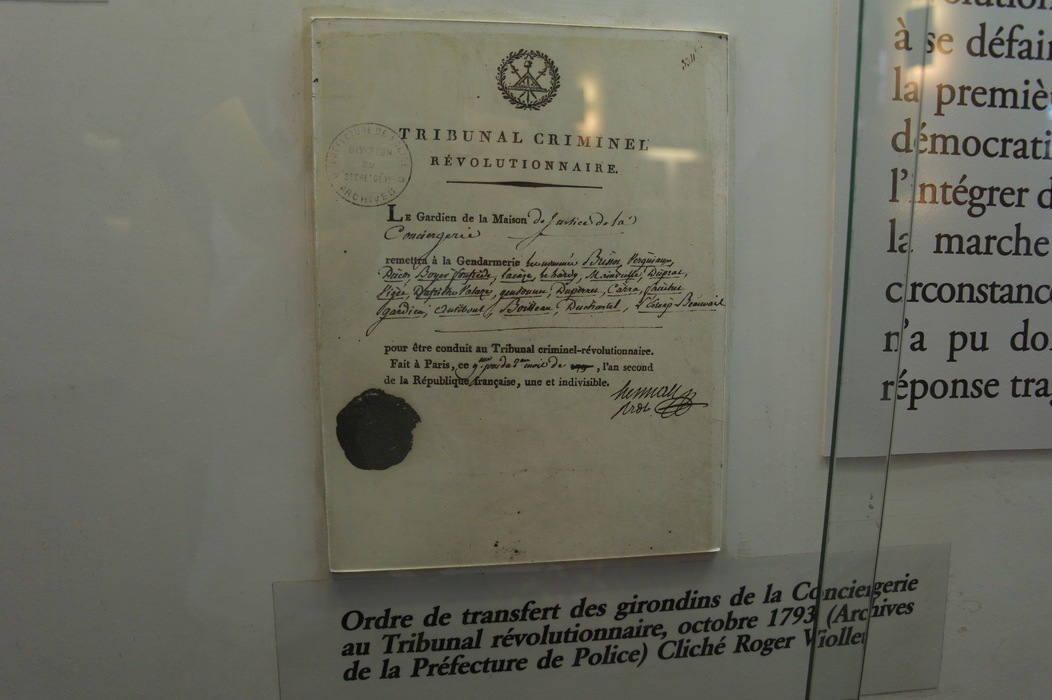 TRIBUNAL CRIMINEL
RÉVOLUTIONNAIRE.
PRÉFECTURE DE POLICE
DIVISION
DU
ARCHIVES
LE Gardien de la Maison de Justice de la
Conciergerie
remettra à la Gendarmerie les nommés Brissot, Vergniaux,
Ducos, Boyer fonfrède, lacaze, le hardy, Mainvielle, Duprat,
Vigée, Dufriche Valazé, gensonné, Duperret, Carra, fauchet
gardien, Antiboul, Boilleau, Duchastel, Sillery
pour être conduit au Tribunal criminel-révolutionnaire.
Fait à Paris, ce du mois de , l'an second
de la République française, une et indivisible.
herman
prdt
Ordre de transfert des girondins de la Conciergerie
au Tribunal révolutionnaire, octobre 1793 (Archives
de la Préfecture de Police) Cliché Roger Viollet
à se défai
la premiè
démocrati
l'intégrer d
la marche
circonstanc
n'a pu do
réponse tra